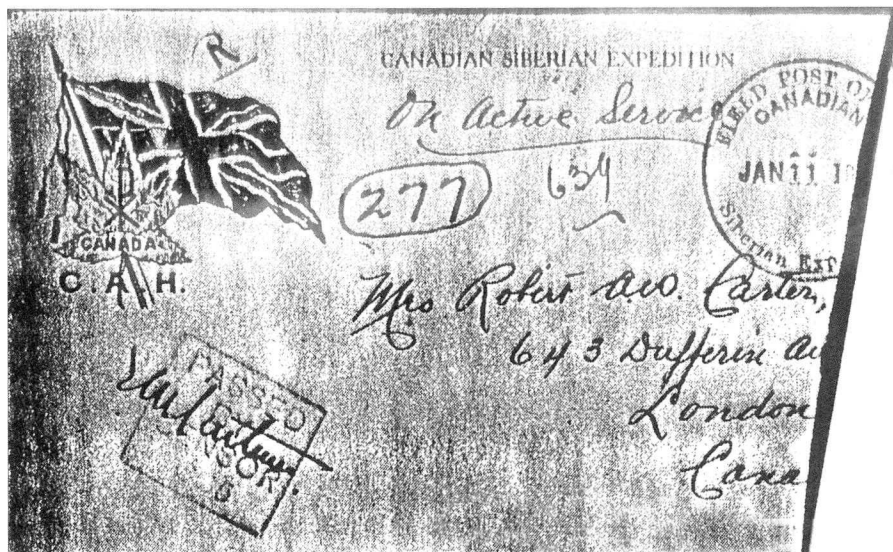 R
CANADIAN SIBERIAN EXPEDITION
On Active Service
277
639
FIELD POST OF
CANADIAN
JAN 11 19
Siberian Exp
CANADA
C. A. H.
Mrs Robert Carter,
643 Dufferin Av
London
Cana
PASSED
CENSOR.
5